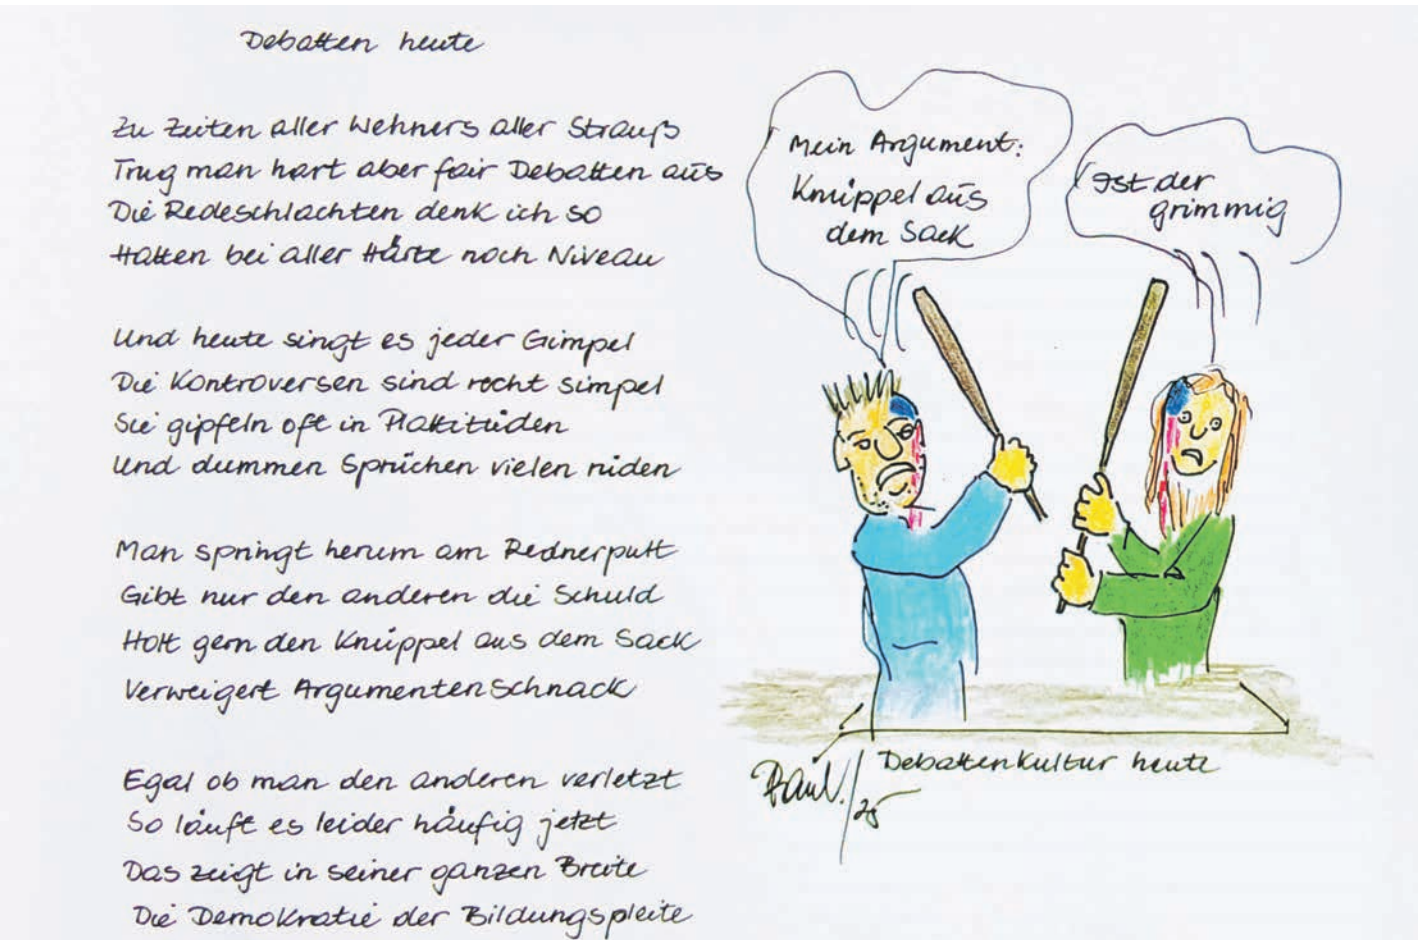 Debatten heute
Zu Zeiten aller Wehners aller Strauß
Trug man hart aber fair Debatten aus
Die Redeschlachten denk ich so
Hatten bei aller Härte noch Niveau
Und heute singt es jeder Gimpel
Die Kontroversen sind recht simpel
Sie gipfeln oft in Plattitüden
Und dummen Sprüchen vielen rüden
Man springt herum am Rednerpult
Gibt nur den anderen die Schuld
Holt gern den Knüppel aus dem Sack
Verweigert Argumentenschnack
Egal ob man den anderen verletzt
So läuft es leider häufig jetzt
Das zeigt in seiner ganzen Breite
Die Demokratie der Bildungspleite
Mein Argument:
Knüppel aus
dem Sack
Ist der
grimmig
Debattenkultur heute
/25